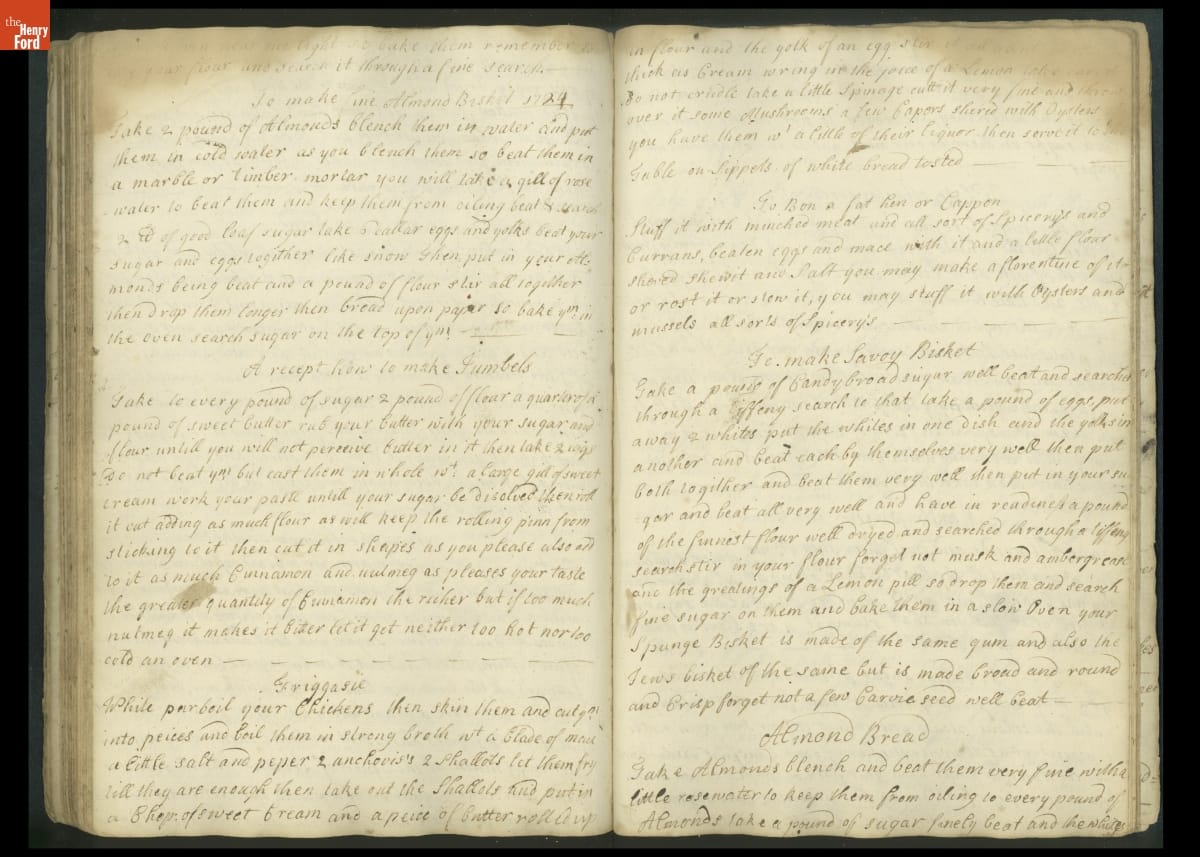 the
Henry
Ford
so bake them remember to
your flour and search it through a fine search.
To make fine Almond Bisket 1724
Take 2 pound of Almonds blench them in water and put
them in cold water as you blench them so beat them in
a marble or timber mortar you will take a gill of rose
water to beat them and keep them from oiling beat & search
2 of good loaf sugar take eggs and yolks beat your
sugar and eggs together like snow then put in your Al
monds being beat and a pound of flour stir all together
then drap them longer then bread upon papar so bake ym in
the oven search sugar on the top of ym
A recept how to make Jumbels
Take to every pound of sugar 2 pound of flour a quarter of a
pound of sweet butter rub your butter with your sugar and
flour untill you will not perceive butter in it then take 2
Do not beat ym but cast them in whole wt a large gill of sweet
cream work your paste untill your sugar be disolved then roll
it out adding as much flour as will keep the rolling pinn from
sticking to it then cut it in shapes as you please also add
to it as much Cinnamon and nutmeg as pleases your taste
the greater quantity of Cunnamon the richer but if too much
nutmeg it makes it bitter let it get neither too hot nor too
cold an oven
Friggasie
While parboil your Chickens then skin them and cut ym
into peices and boil them in strong broth wt a blade of mace
a little salt and peper 2 anchovis's 2 shallots let them fry
till they are enough then take out the shallots and put in
a Chop. of sweet cream and a peice of butter rolled up
in flour and the yolk of an egg stir it
thick as Cream wring in the joice of a Lemon
Do not crudle take a little Spinage cutt it very fine and throw
over it some Mushrooms a few Capors shered with Oysters
you have them wt a little of their liquor then serve it to
Table on Sippets of white bread tosted
To Bon a fat hen or Cappon
Stuff it with minched meat and all sort of Spicerys and
Currans, beaten eggs and mace with it and a little flour
shered shewit and Salt you may make a florentine of it
or rost it or stow it, you may stuff it with Oysters and
mussels all sorts of Spicerys
To make Savoy Bisket
Take a pound of Candybroad sugar well beat and searched
through a tiffeny search to that take a pound of eggs, put
away 2 whits put the whites in one dish and the yolks in
another and beat each by themselves very well then put
both togither and beat them very well then put in your su
gar and beat all very well and have in readiness a pound
of the finnest flour well dryed and searched through a tiffeny
search stir in your flour forget not musk and ambergrease
and the greatings of a Lemon pill so drop them and search
fine sugar on them and bake them in a slow Oven your
Spunge Bisket is made of the same gum and also the
Jews bisket of the same but is made broad and round
and Crisp forget not a few Carvie seed well beat
Almond Bread
Take Almonds blench and beat them very fine with a
little rosewater to keep them from oiling to every pound of
Almonds take a pound of sugar finely beat and the whites